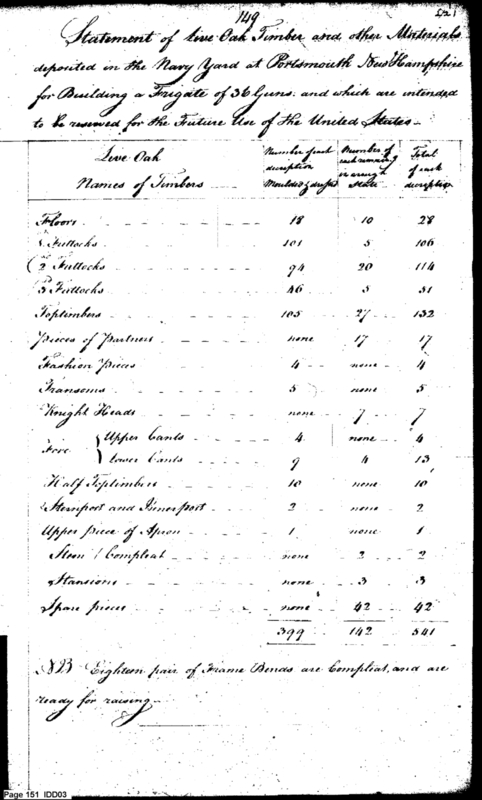 149
Statement of Live Oak Timber and other Materials
deposited in the Navy Yard at Portsmouth New Hampshire
for Building a Frigate of 36 Guns: and which are intended
to be reserved for the Future Use of the United States
Live Oak
Names of Timbers
Number of each description Moulded & dressed
Number of each remaining in a rough State
Total of each description
Floors 18 10 28
1 Futtocks 101 5 106
2 Futtocks 94 20 114
3 Futtocks 46 5 51
Toptimbers 105 27 132
Pieces of Partners none 17 17
Fashion Pieces 4 none 4
Transoms 5 none 5
Knight Heads none 7 7
Fore { Upper Cants 4 none 4
Lower Cants 9 4 13
Half Toptimbers 10 none 10
Sternport and Innerport 2 none 2
Upper piece of Apron 1 none 1
Stem Compleat none 2 2
Stansions none 3 3
Spare pieces none 42 42
399 142 541
NB Eighteen pair of Frame Bends are Compleat, and are
ready for raising
Page 151 IDD03